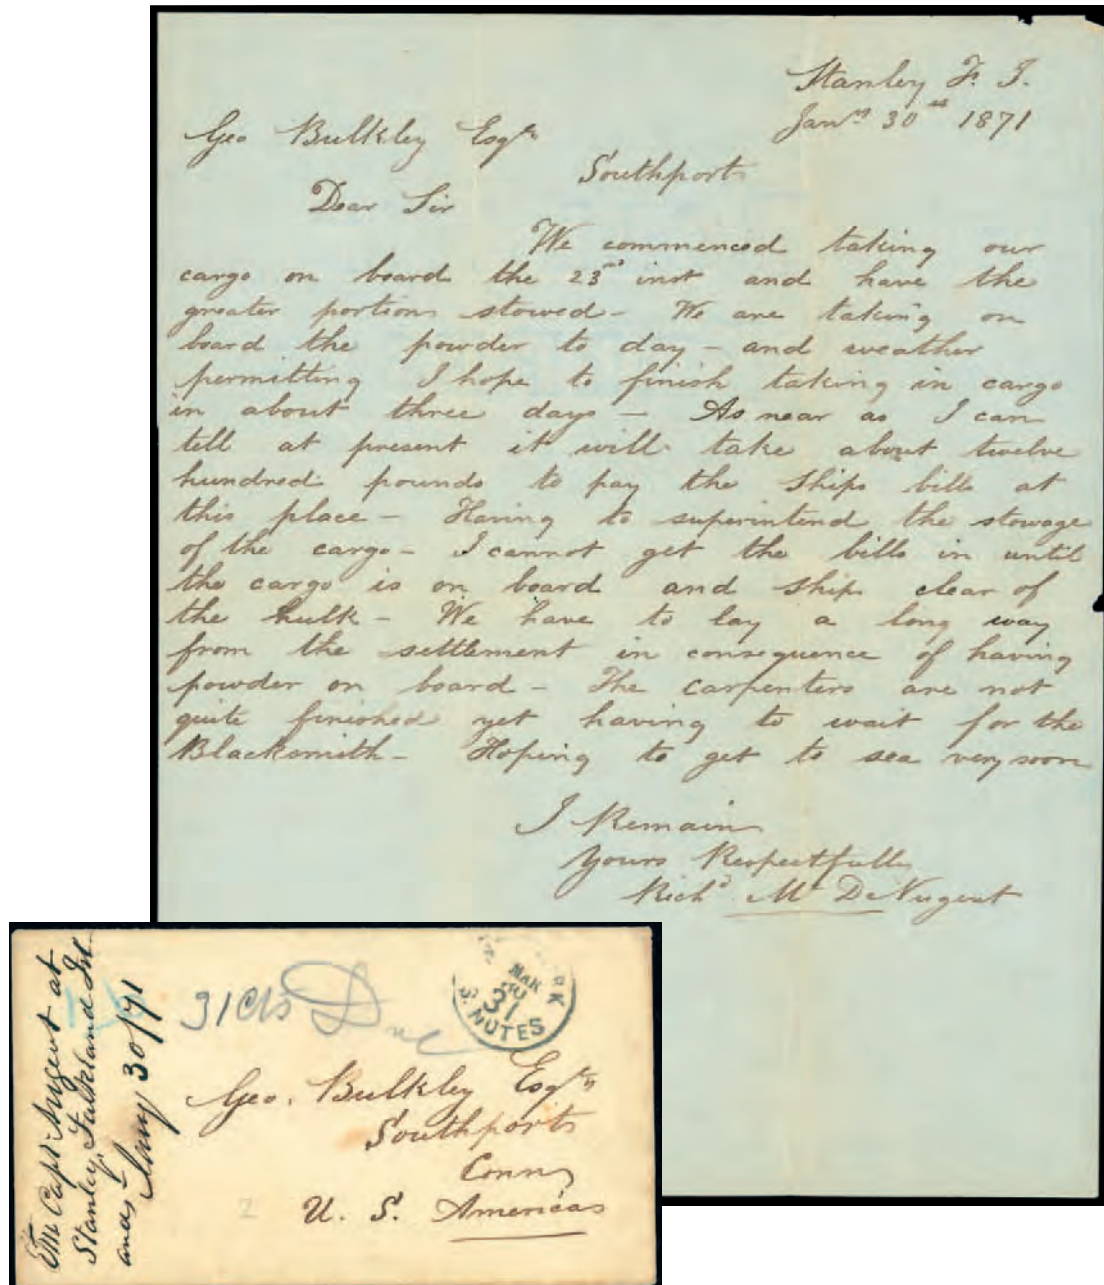 Stanley F. I.
Jany 30th 1871
Geo Bulkley Esqre
Southport
Dear Sir
We commenced taking our
cargo on board the 23rd inst and have the
greater portion stowed - We are taking on
board the powder to day - and weather
permitting I hope to finish taking in cargo
in about three days - As near as I can
tell at present it will take about twelve
hundred pounds to pay the Ships bills at
this place - Having to superintend the stowage
of the cargo - I cannot get the bills in until
the cargo is on board and ship clear of
the hulk - We have to lay a long way
from the settlement in consequence of having
powder on board - The carpenters are not
quite finished yet having to wait for the
Blacksmith - Hoping to get to sea very soon
I Remain
Yours Respectfully
Richd Mc D Nugent
Capt Nugent at
Stanley, Falkland Isl
ands
Jany 30/71
31 Cts Due
MAR
31
NOTES
Geo. Bulkley Esqre
Southport
Conn
U. S. America